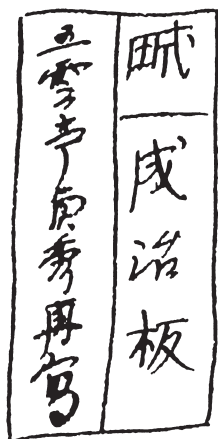 成治板
五雲亭貞秀再写